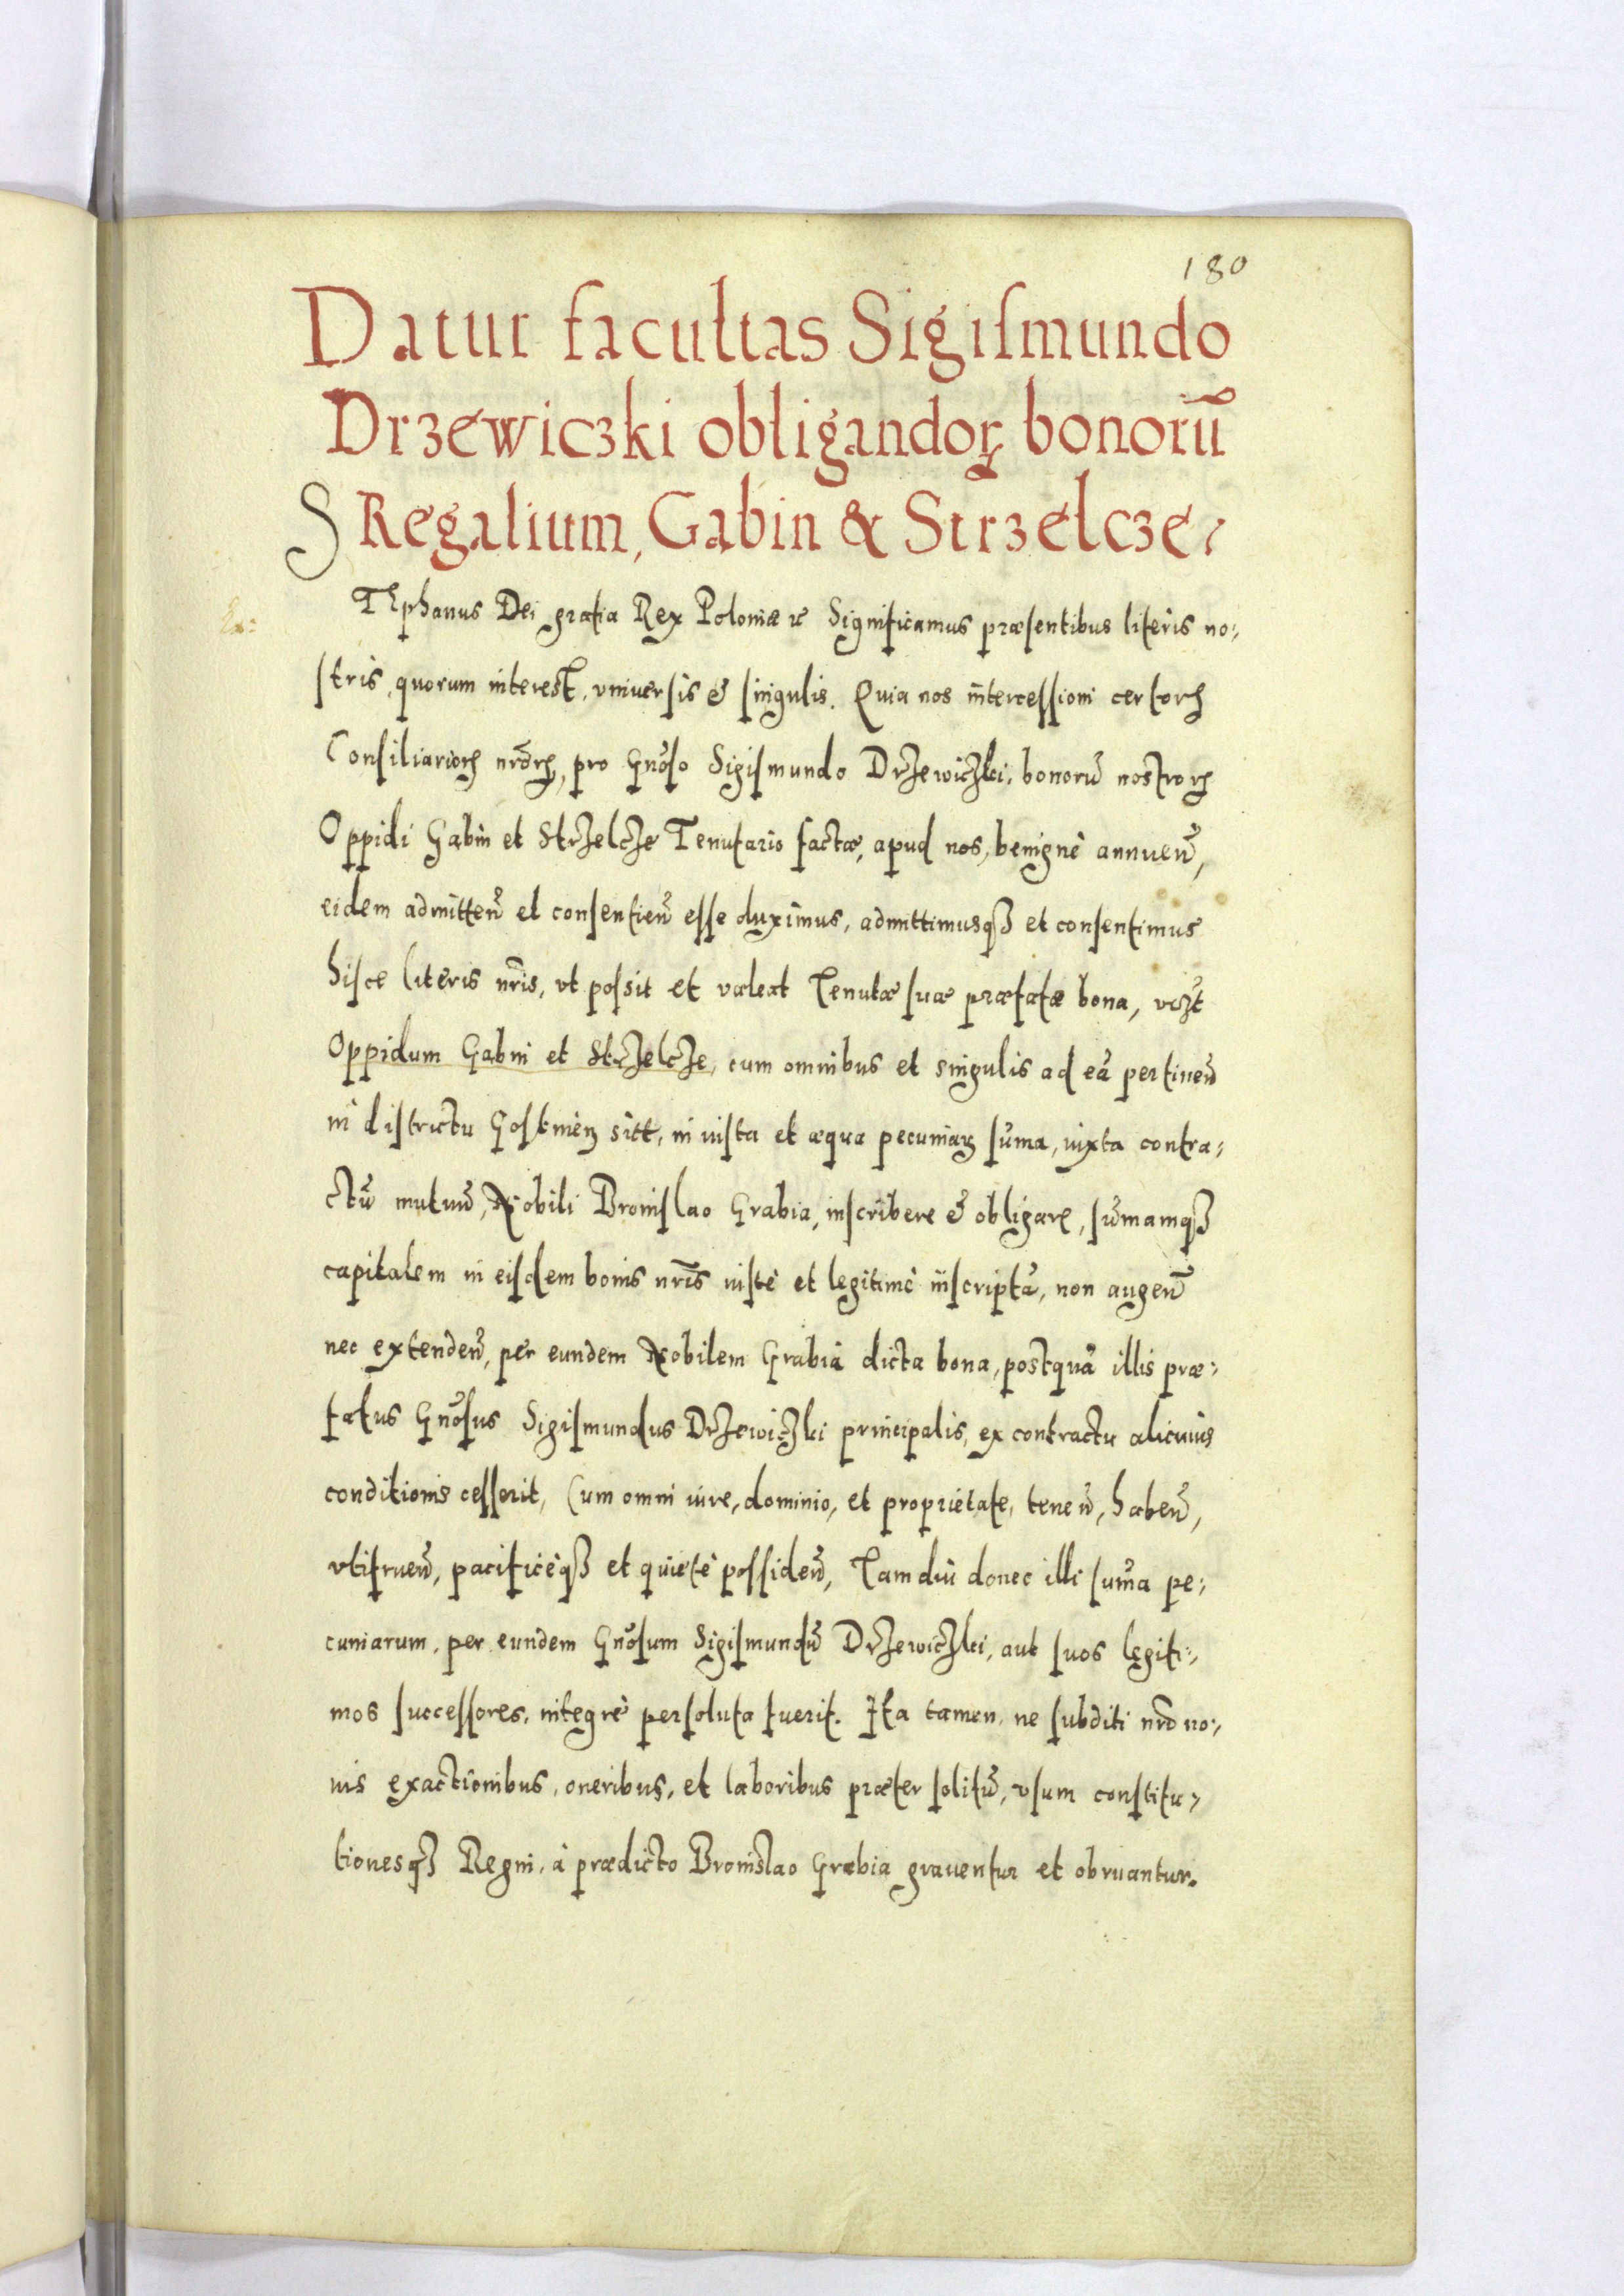 180
Datur facultas Sigiſmundo
Drzewiczki obligandoꝝ bonorū
Regalium, Gabin & Strzelcze.
STephanus Dei gratia Rex Poloniæ ꝛc Significamus præſentibus literis no:
ſtris, quorum interest, vniuerſis & ſingulis. Quia nos intercessioni certorꝝ
Conſiliariorꝝ nr̄orꝝ, pro Gnōſo Sigiſmundo Drzewiczki, bonorū nostrorꝝ
Oppidi Gabin et Strzelcze Tenutario factæ, apud nos, benignè annuen̄,
eidem admitten̄ et conſentien̄ eſſe duximus, admittimusqꝫ et conſentimus
hiſce literis nr̄is, vt poſsit et valeat Tenutæ ſuæ præfatæ bona, vꝫt
Oppidum Gabin et Strzelcze, cum omnibus et singulis ad eā pertinen̄
in diſtrictu Goſtinień sitt, in iusta et æqua pecuniaꝝ ſum̄a, iuxta contra:
ctū mutuū, Nobili Broniſlao Grabia, inſcribere & obligare, ſum̄amqꝫ
capitalem in eiſdem bonis nr̄is iuſtè et legitimè inſcriptā, non augen̄
nec extenden̄, per eundem Nobilem Grabia dicta bona, postquā illis præ:
fatus Gnōſus Sigiſmundus Drzewiczki principalis, ex contractu alicuius
conditionis ceſſerit, Cum omni iure, dominio, et proprietate, tenen̄, haben̄,
vtifruen̄, pacificèqꝫ et quietè poſſiden̄, Tam diu donec illi ſum̄a pe:
cuniarum, per eundem Gnōſum Sigiſmundū Drzewiczki, aut ſuos legiti:
mos ſucceſſores, integrè perſoluta fuerit. Ita tamen, ne ſubditi nr̄i no:
uis exactionibus, oneribus, et laboribus præter ſolitū, vſum conſtitu:
tionesqꝫ Regni, à prædicto Bronislao Grabia grauentur et obruantur.